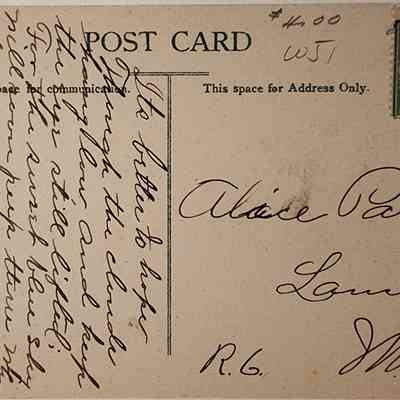 $4.00
W51
POST CARD
pace for communication.
This space for Address Only.
Its better to hope
Though the clouds
hang low and keep
the eyes still lifted;
For the sweet blue sky
Will soon peep
Alice Pa
R.6.